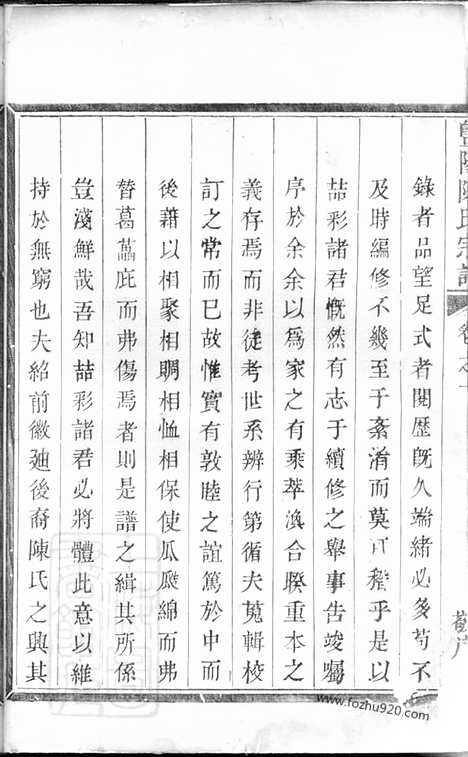 暨陽陳氏宗譜 卷之一
錄者品望足式者閱歷旣久端緒必多苟不
及時編修不幾至于紊淆而莫可稽乎是以
喆彩諸君慨然有志于續修之舉事告竣囑
序於余余以爲家之有乘萃渙合睽重本之
義存焉而非徒考世系辨行第循夫蒐輯校
訂之常而已故惟實有敦睦之誼篤於中而
後藉以相聚相賙相恤相保使瓜瓞綿而弗
替葛藟庇而弗傷焉者則是譜之緝其所係
豈淺鮮哉吾知喆彩諸君必將體此意以維
持於無窮也夫紹前徽廸後裔陳氏之興其
www.fozhu920.com